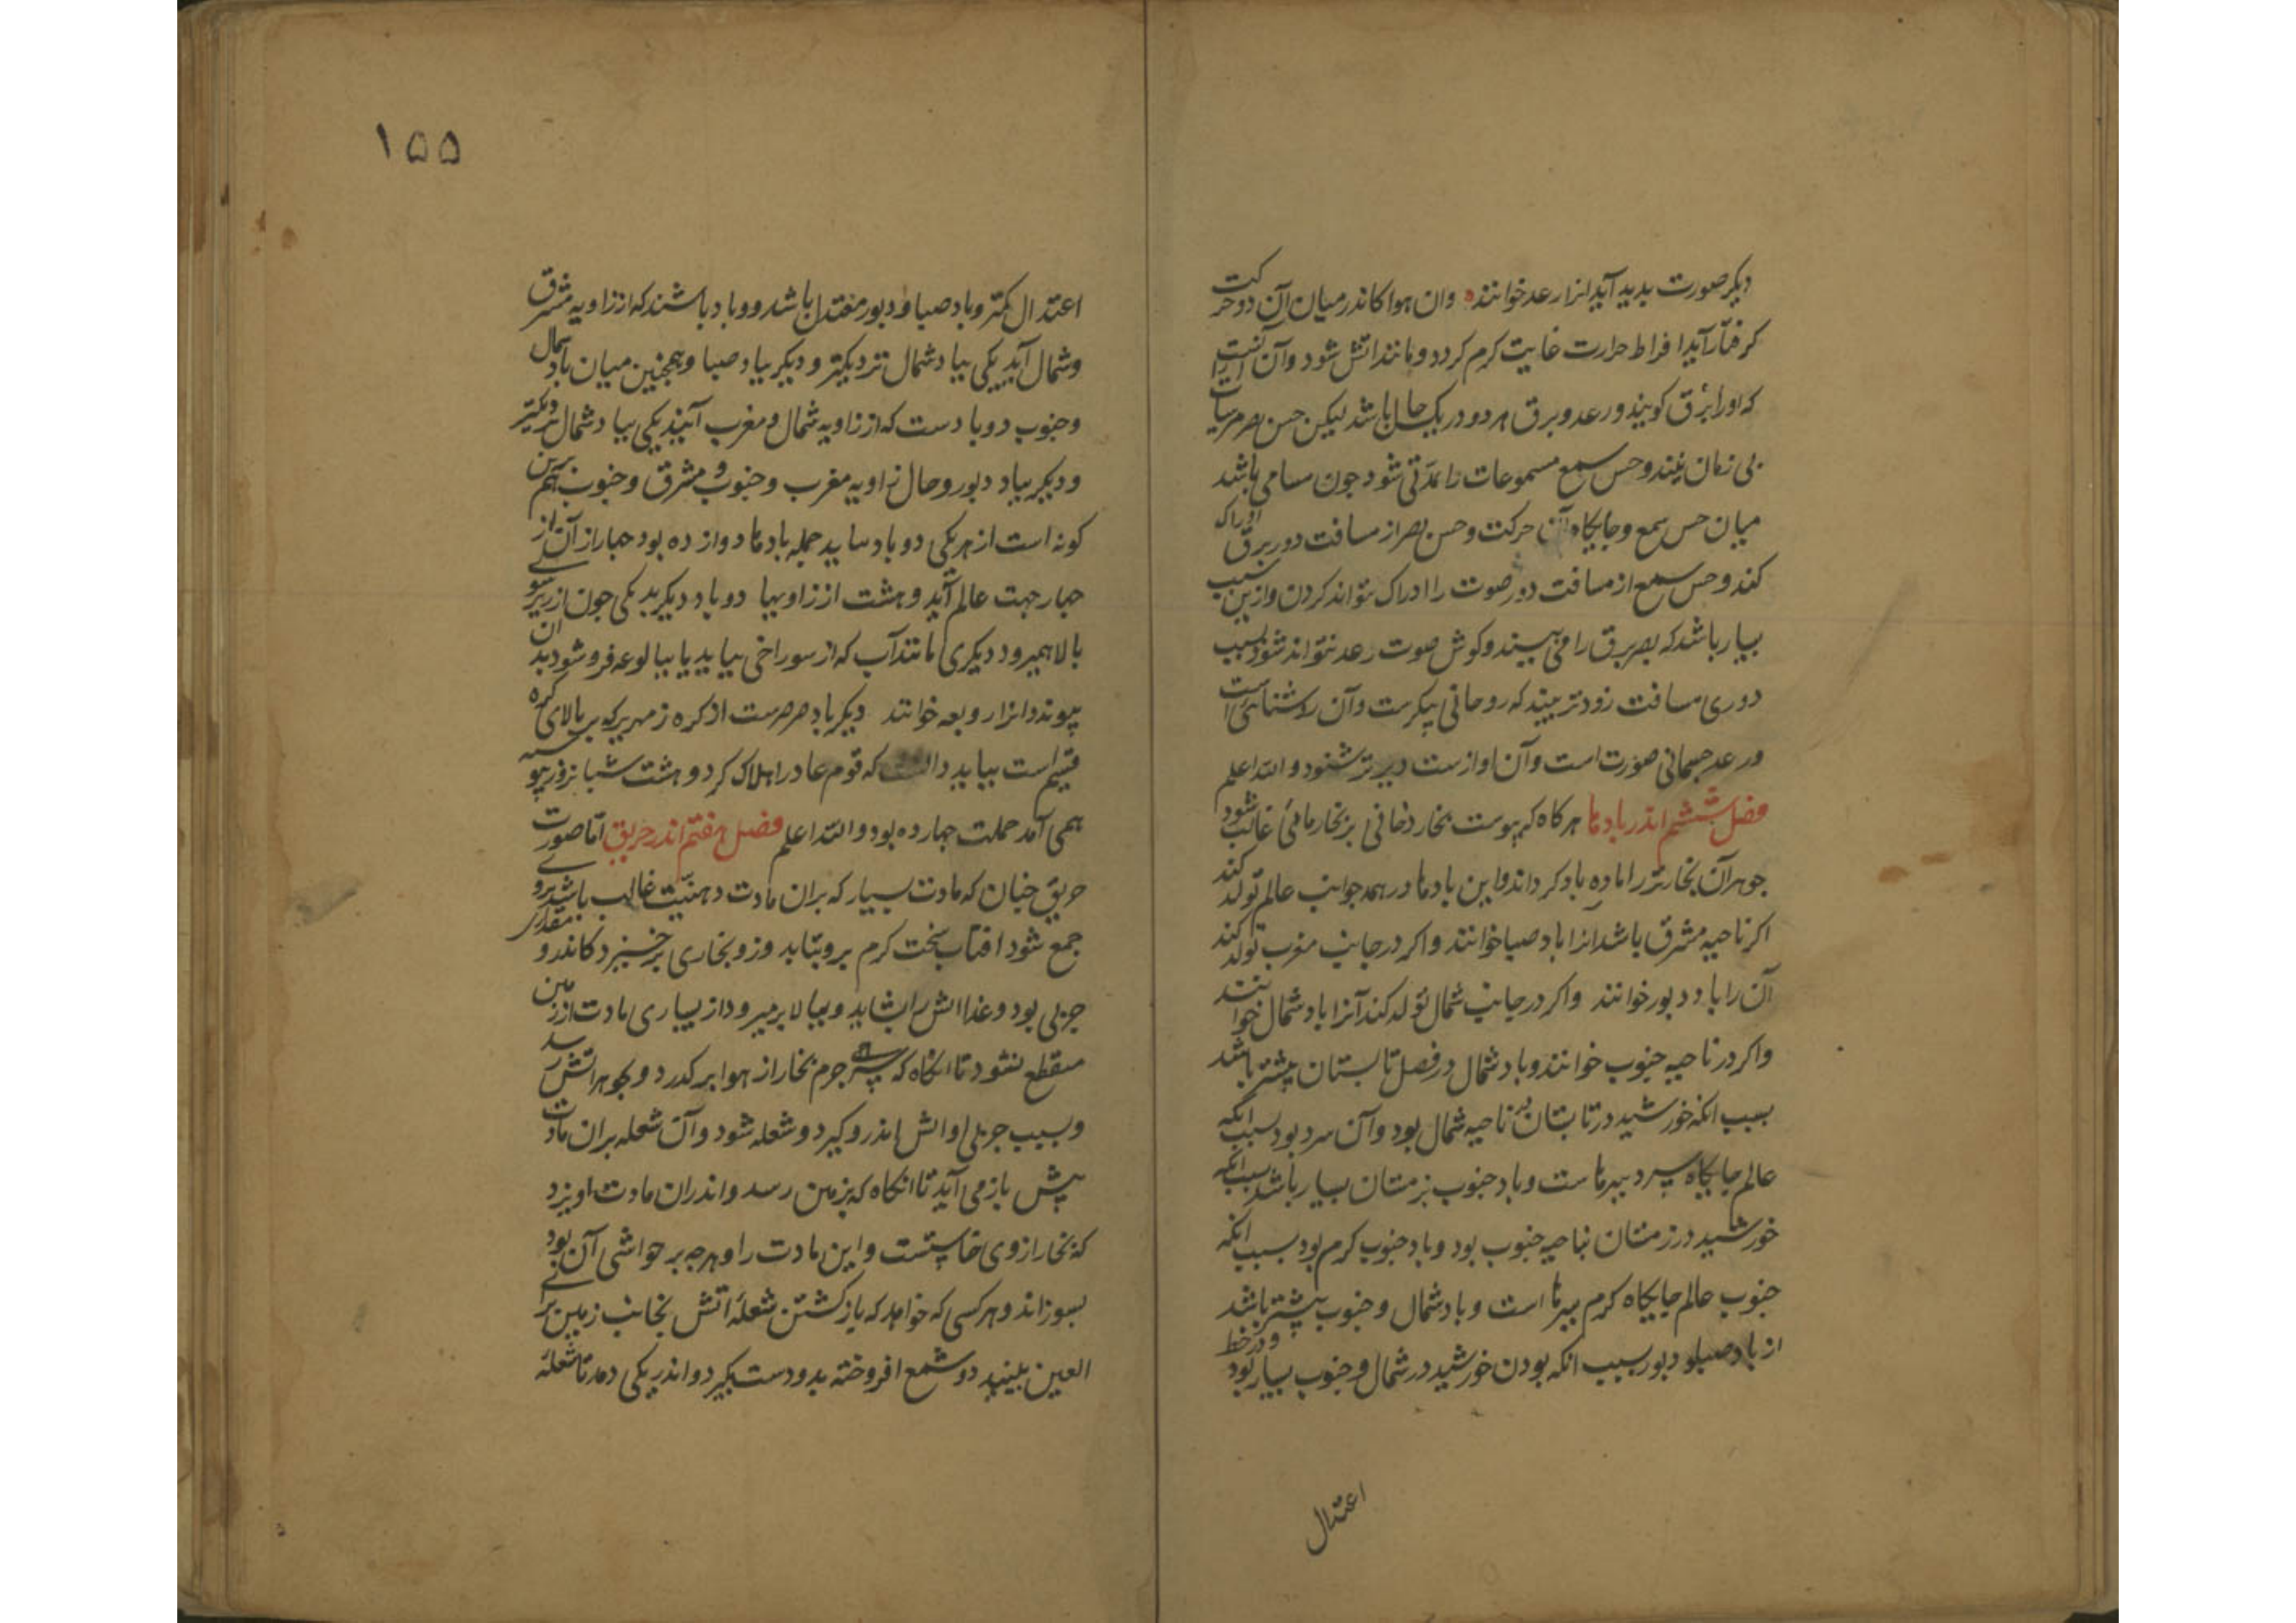 دیکر صورت بدید آید انرا رعد خوانند وان هوا کاندر میان آن دو حرکت
کرفتار آید افراط حرارت غایت کرم کردد و مانند اتش شود وآن آنست
که اورا برق کویند و رعد و برق هر دو در یک حال باشد لیکن حس بصر مرئیات را
بی زمان بیند و حس سمع مسموعات را بمدتی شود جون مسامی باشد
میان حس سمع و جایکاه آن حرکت و حس بصر از مسافت دور برق ادراک
کند و حس سمع از مسافت دور صوت را ادراک نتواند کردن وازین سبب
بسیار باشد که بصر برق را می بیند و کوش صوت رعد نتواند شنود بسبب
دوری مسافت زودتر بیند که روحانی پیکرست وآن روشنائی است
ورعد جسمانی صورت است وآن اوازست دیرتر شنود والله اعلم
فصل ششم اندر بادها هرکاه که یبوست بخار دخانی بر بخار مائی غالب شود
جوهر آن بخار تر را ماده باد کرداند واین بادها در همه جوانب عالم تولد کند
اکر ناحیه مشرق باشد انرا باد صبا خوانند واکر در جانب مغرب تولد کند
آن را باد دبور خوانند واکر در جانب شمال تولد کند آنرا باد شمال خوانند
واکر در ناحیه جنوب خوانند وباد شمال در فصل تابستان بیشتر باشد
بسبب انکه خورشید در تابستان بر ناحیه شمال بود وآن سرد بود بسبب انکه
عالم جایکاه سرد سیرهاست وباد جنوب بزمستان بسیار باشد بسبب انکه
خورشید در زمستان بناحیه جنوب بود وباد جنوب کرم بود بسبب انکه
جنوب عالم جایکاه کرم سیرها است وباد شمال وجنوب بیشتر باشد
از باد صبا و دبور بسبب انکه بودن خورشید در شمال وجنوب بسیار بود ودر خط
اعتدال
۱۵۵
اعتدال کمتر وباد صبا و دبور معتدل باشد ودو باد باشند که از زاویه مشرق
وشمال آید یکی بباد شمال نزدیکتر و دیکر بباد صبا وهمچنین میان باد شمال
وجنوب دو باد ست که از زاویه شمال و مغرب آیند یکی بباد شمال نزدیکتر
ودیکر بباد دبور وحال زاویه مغرب وجنوب و مشرق وجنوب هم برین
کونه است از هر یکی دو باد بیاید جمله بادها دوازده بود جهار از آن از
جهار جهت عالم آید وهشت از زاویها دو باد دیکر بد یکی جون از زیر سوی
بالا همیرود دیکری مانند آب که از سوراخی بیاید یا ببالوعه فرو شود بدان
پیوندد انرا زوبعه خوانند دیکر باد صرصرست از کره زمهریر که بر بالای کره
نسیم است بیاید که قوم عاد را هلاک کرد وهشت شبانروز پیوسته
همی آمد حملت جهارده بود والله اعلم فصل هفتم اندر حریق اما صورت
حریق جنان که مادت بسیار که بران مادت دهنیت غالب باشد بروی
جمع شود افتاب سخت کرم برو بتابد وزو بخاری برخیزد کاندرو مقداری
جربی بود و غذا اتش را بشاید وببالا برمیرود از بسیاری مادت از زمین
منقطع نشود تا انکاه که جرم بخار از هوا بر کذرد وبجوهر اتش رسد
وبسبب جربی او اتش اندرو کیرد وشعله شود وآن شعله بران مادت
پیش باز می آید تا انکاه که بزمین رسد واندران مادت اویزد
که بخار ازوی خاستست واین مادت را وهرجه بر حواشی آن بود
بسوزاند وهر کسی که خواهد که بازکشتن شعلۀ اتش بجانب زمین برای
العین ببیند دو شمع افروخته بدو دست بکیرد واندر یکی دمد تا شعلۀ